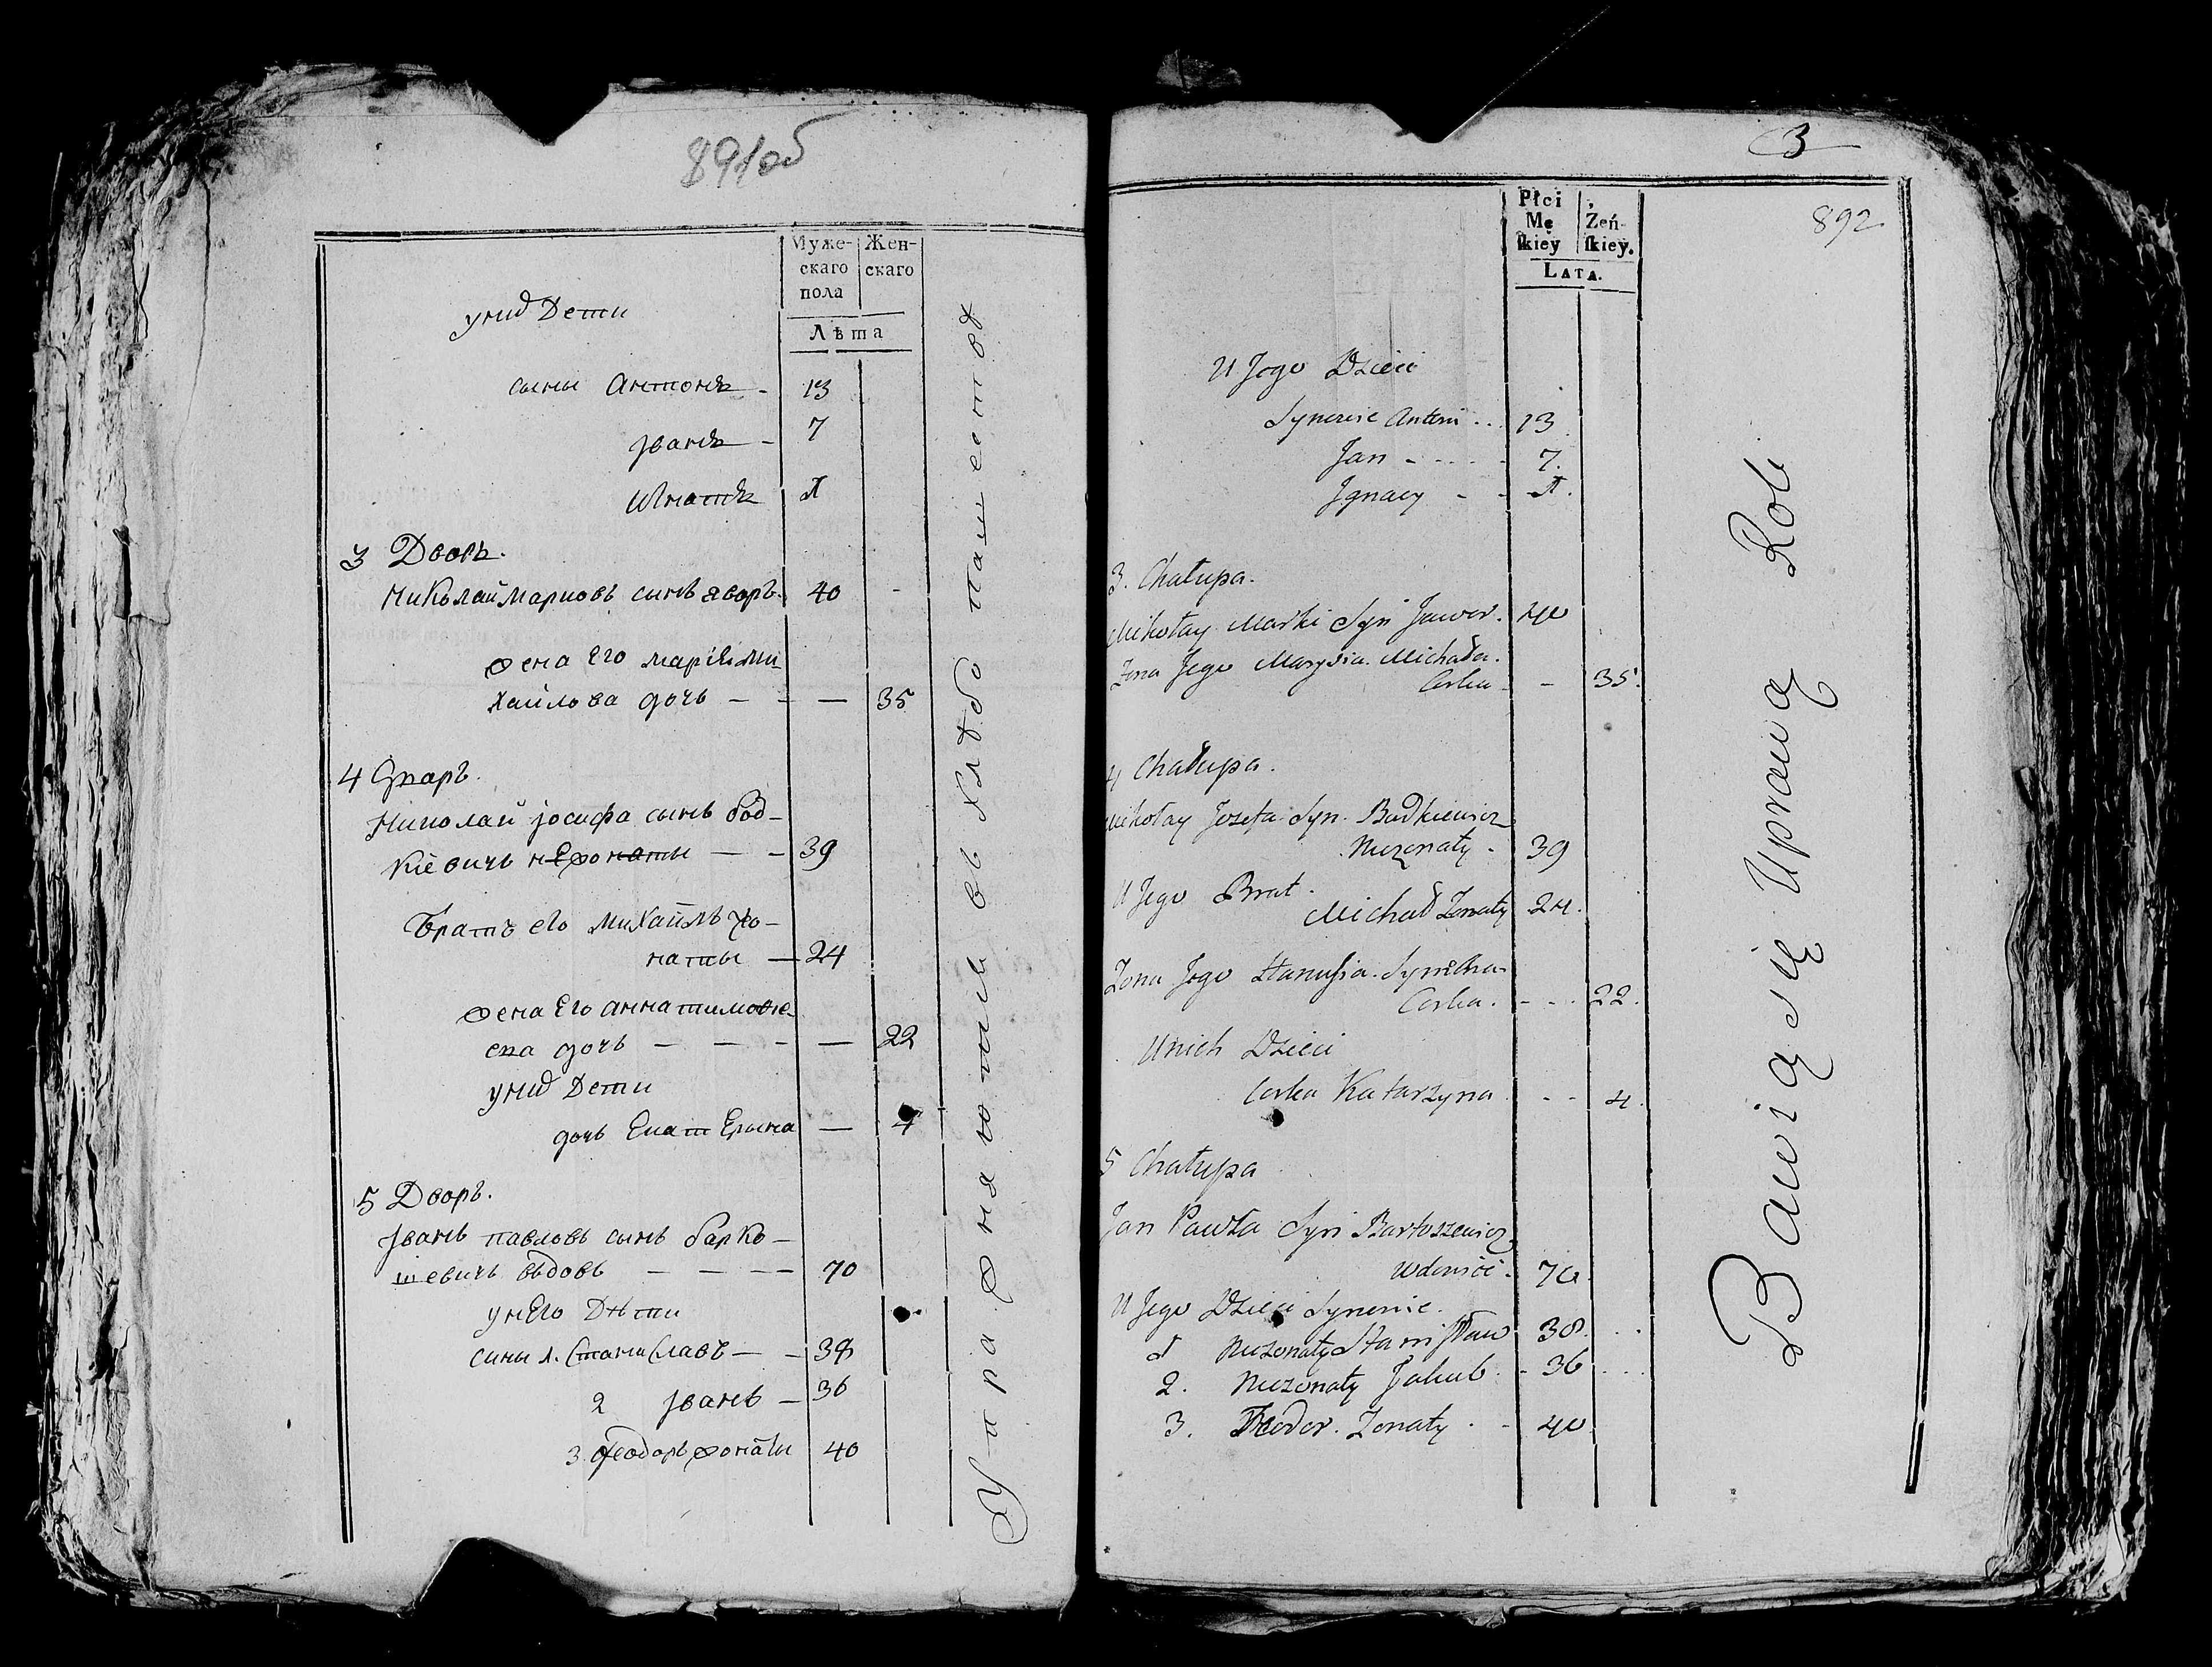 891об
Муже- Жен-
скаго скаго
пола
Лѣта
у них Дети
сыны Антонъ - 13
Јванъ - 7
Игнатъ 1
3 Дворъ.
Николай Марковъ сынъ яворъ. 40 -
жена Его Маріѧ Ми-
хайлова дочь - - — 35
4 Дворъ.
Николай јосифа сынъ бод-
кіевичъ нЕжонаты — - 39
Братъ его Михайлъ жо-
наты — 24
жена Его анна тимофе-
ева дочь — — - — 22
у них Дети
дочь Екат Ерына — 4
5 Дворъ.
Јванъ павловъ сынъ барто-
шевичъ вьдовъ — — — 70
у нЕго Дѣти
сыны 1. Станиславъ — - 38
2 Јванъ - 36
3. Феодоръ жонаты 40
Упражняютым въ хлѣбопашествѣ
3
892
Płci
Mę Żeń-
skiey skiey.
Lata.
U Jego Dzieci
Synowie Antoni .. 13
Jan - - - - 7.
Jgnacy - - 1.
3. Chałupa.
Mikołay Marki Syn Jawor. 40
Zona Jego Marysia. Michała.
Corka - - 35.
4 Chałupa.
Mikołay Jozefa Syn. Budkiewicz
Niezonaty - 39
U Jego Brat.
Michał Zonaty 24.
Zona Jego Hanusia.
Corka. - - - 22.
Unich Dzieci
Corka Katarzyna - - 4.
5 Chałupa
Jan Pawła Syn Bartoszewicz
Wdowiec. 70.
U Jego Dzieci Synowie.
1 Niezonaty Stanisław 38.
2. Niezonaty Jakub. - 36
3. Teodor. Zonaty. - 40
Bawią się Uprawą Roli